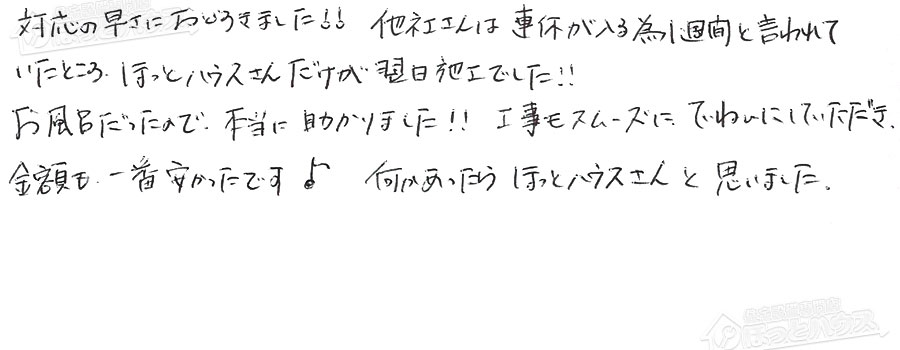 対応の早さにおどろきました!! 他社さんは連休が入る為1週間と言われて
いたところ、ほっとハウスさんだけが翌日施工でした!!
お風呂だったので、本当に助かりました!! 工事もスムーズに、ていねいにしていただき、
金額も、一番安かったです♪ 何かあったらほっとハウスさんと思いました。
住宅設備専門店
ほっとハウス